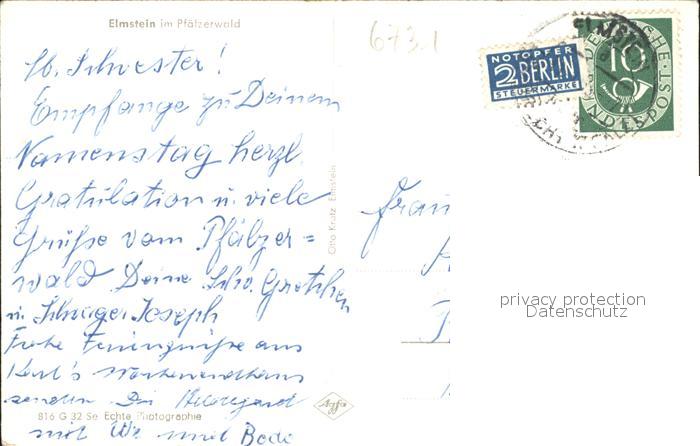 Elmstein im Pfälzerwald
673.1
NOTOPFER
2 BERLIN
STEUERMARKE
DEUTSCHE
10
BUNDESPOST
ELMSTEIN
lb. Schwester!
Empfange zu Deinem
Namenstag herzl.
Gratulation u. viele
Grüße vom Pfälzer=
wald Deine Schw. Gretchen
u. Schwager Joseph
Frohe Feriengrüße aus
Karl's
senden Dir Hildegard
mit und
Frau
Otto Krutz, Elmstein
privacy protection
Datenschutz
816 G 32 Se Echte Photographie
Agfa